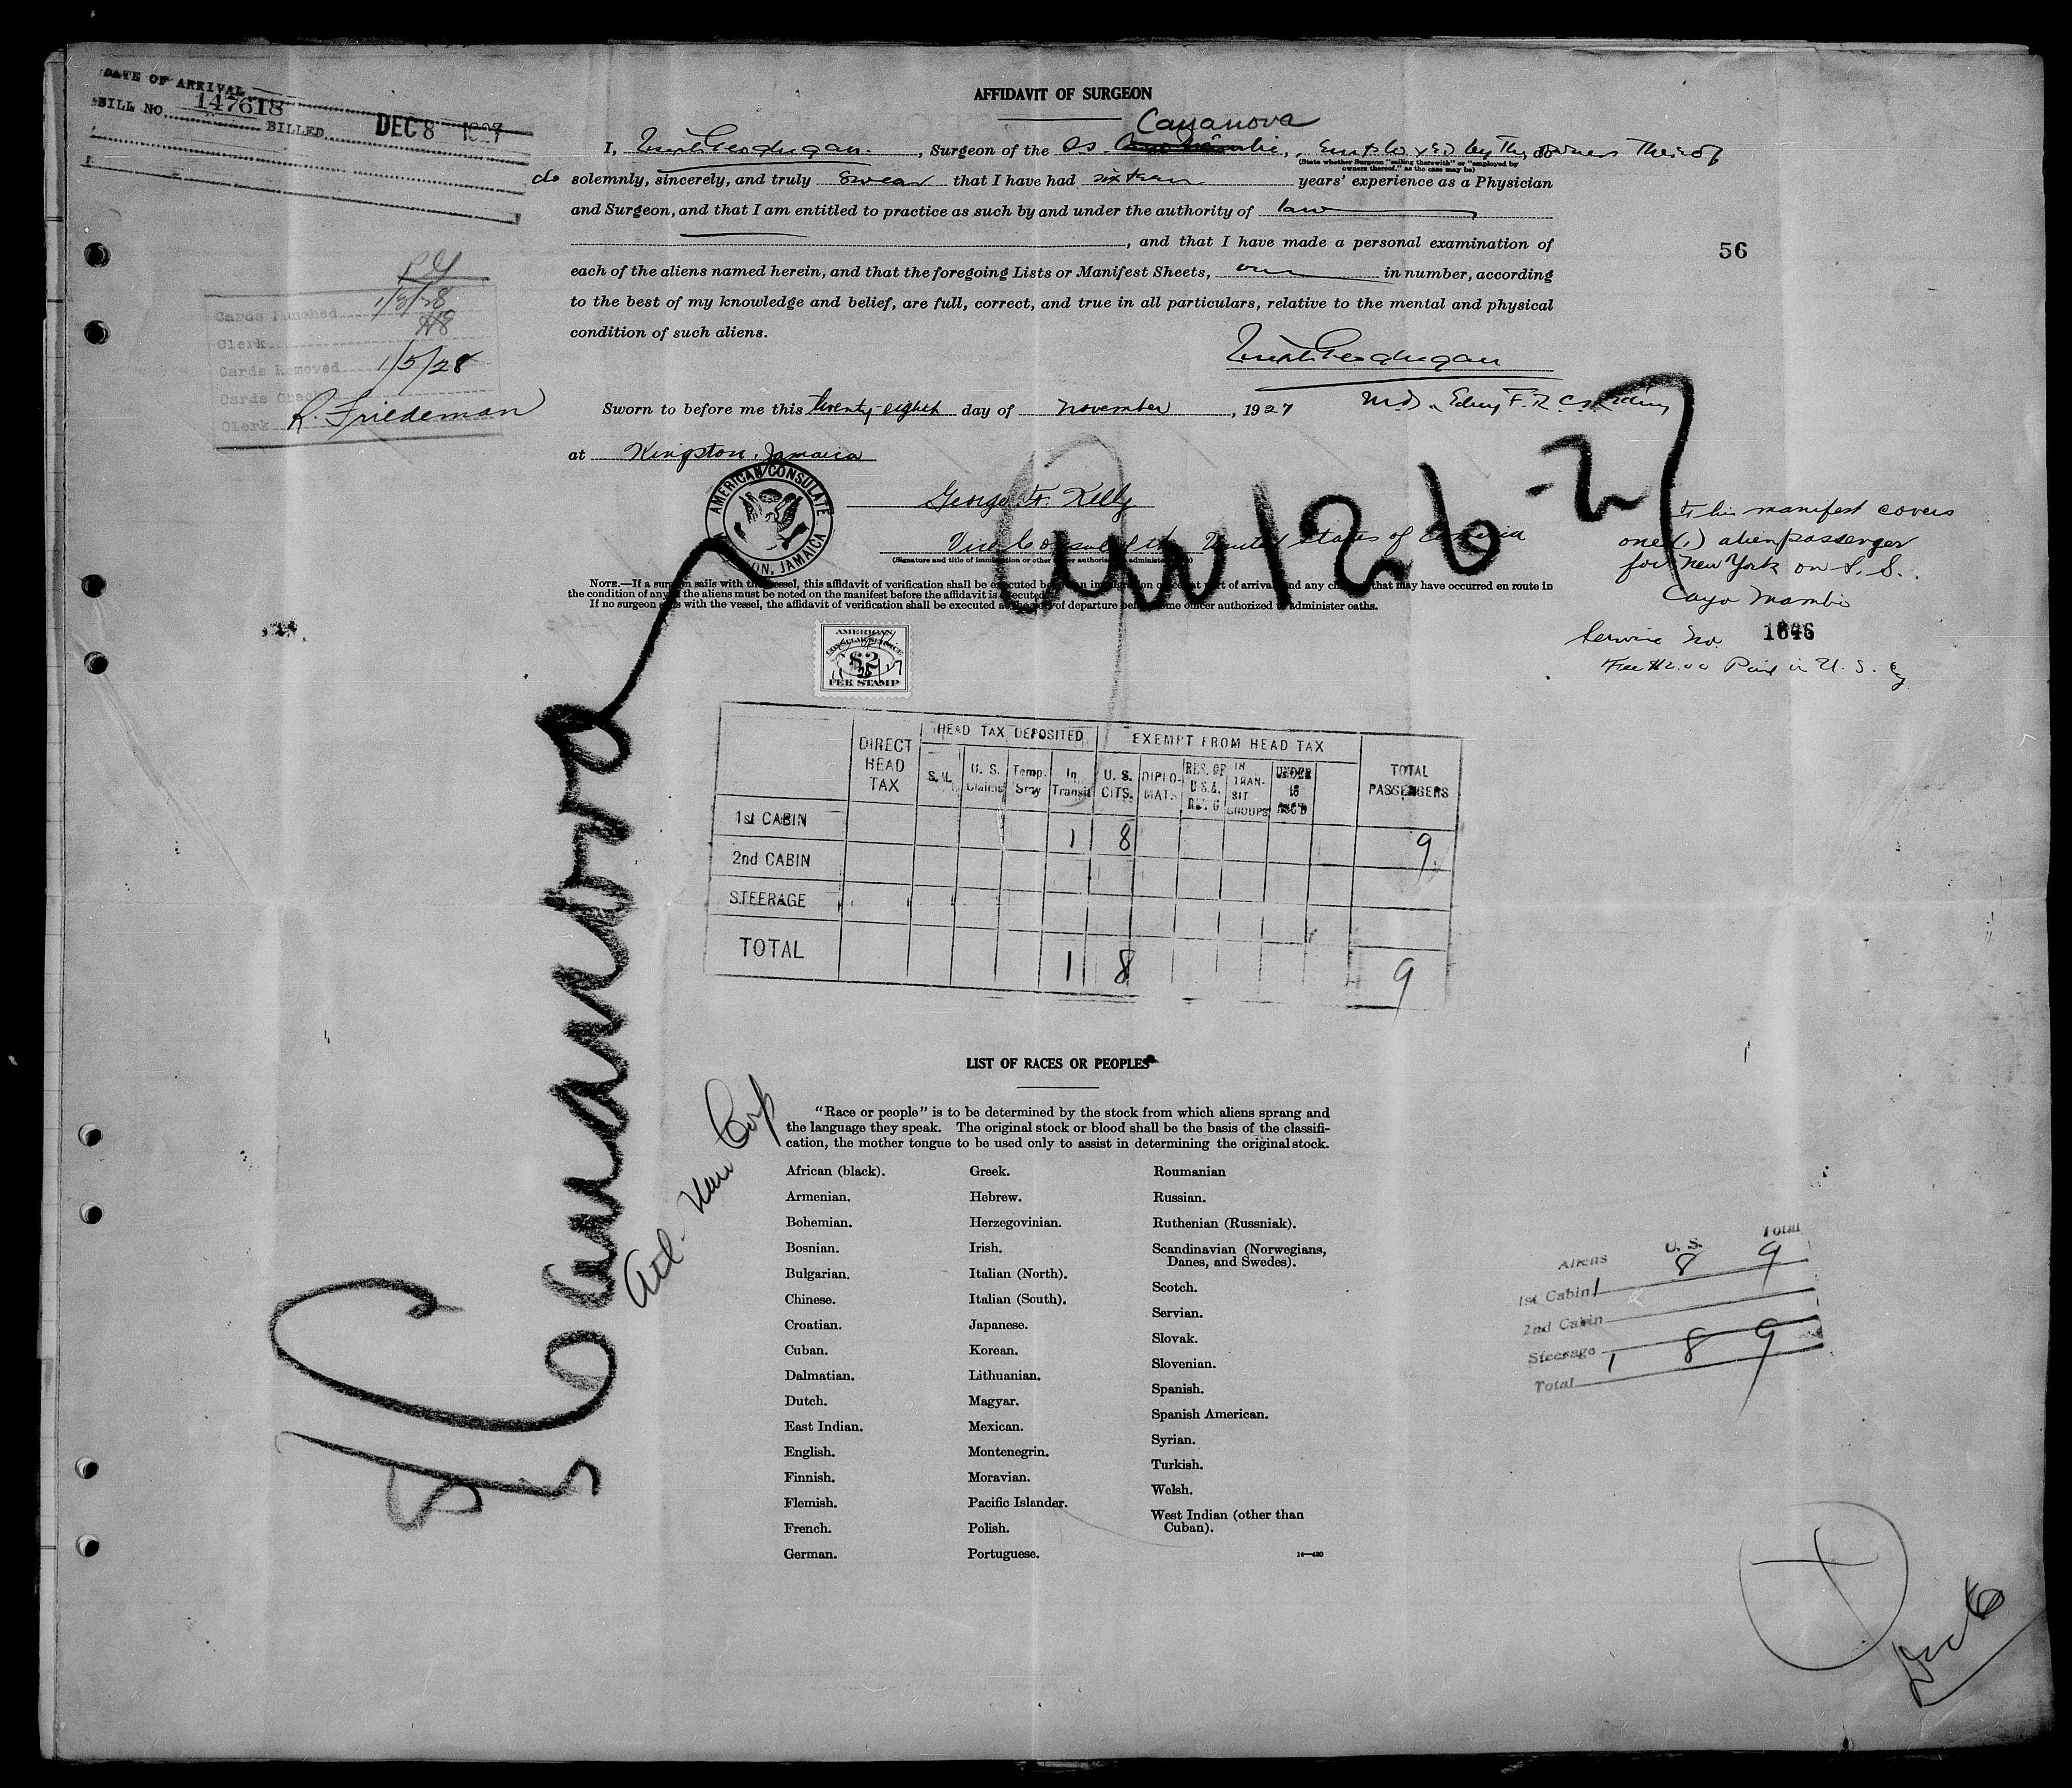 DATE OF ARRIVAL
BILL NO. 147618 BILLED DEC 8 1927
AFFIDAVIT OF SURGEON
Cananova
I, , Surgeon of the SS. , Employed by the owners thereof
(State whether Surgeon "sailing therewith" or "employed by
owners thereof," as the case may be)
do solemnly, sincerely, and truly swear that I have had sixteen years' experience as a Physician
and Surgeon, and that I am entitled to practice as such by and under the authority of law
, and that I have made a personal examination of
each of the aliens named herein, and that the foregoing Lists or Manifest Sheets, one in number, according
to the best of my knowledge and belief, are full, correct, and true in all particulars, relative to the mental and physical
condition of such aliens.
56
Cards Punched 1/3/28
Clerk
Cards Removed 1/5/28
Cards Check
Clerk R. Friedeman
Sworn to before me this twenty-eighth day of November, 1927
at Kingston, Jamaica
AMERICAN CONSULATE
KINGSTON, JAMAICA
George F. Kelly
Vice Consul of the United States of America
(Signature and title of immigration or other officer authorized to administer oaths)
Arr 12-6-27
NOTE.—If a surgeon sails with the vessel, this affidavit of verification shall be executed before an immigration officer at port of arrival and any changes that may have occurred en route in
the condition of any of the aliens must be noted on the manifest before the affidavit is executed.
If no surgeon sails with the vessel, the affidavit of verification shall be executed at the port of departure before some officer authorized to administer oaths.
This manifest covers
one (1) alien passenger
for New York on S. S.
Cayo Mambi
Service No. 1646
Fee $2.00 Paid in U. S. Cy.
AMERICAN
$2
FEE STAMP
DIRECT HEAD TAX
HEAD TAX DEPOSITED
EXEMPT FROM HEAD TAX
TOTAL PASSENGERS
U. S. Claims
Temp. Stay
In Transit
U. S. CITS.
DIPLOMAT.
RES. OF U.S.A.
IN TRANSIT GROUPS
UNDER 16
1st CABIN 1 8 9
2nd CABIN
STEERAGE
TOTAL 1 8 9
SS Cananova
Atl. Nav Corp
LIST OF RACES OR PEOPLES
"Race or people" is to be determined by the stock from which aliens sprang and
the language they speak. The original stock or blood shall be the basis of the classifi-
cation, the mother tongue to be used only to assist in determining the original stock.
African (black).
Armenian.
Bohemian.
Bosnian.
Bulgarian.
Chinese.
Croatian.
Cuban.
Dalmatian.
Dutch.
East Indian.
English.
Finnish.
Flemish.
French.
German.
Greek.
Hebrew.
Herzegovinian.
Irish.
Italian (North).
Italian (South).
Japanese.
Korean.
Lithuanian.
Magyar.
Mexican.
Montenegrin.
Moravian.
Pacific Islander.
Polish.
Portuguese.
Roumanian
Russian.
Ruthenian (Russniak).
Scandinavian (Norwegians,
Danes, and Swedes).
Scotch.
Servian.
Slovak.
Slovenian.
Spanish.
Spanish American.
Syrian.
Turkish.
Welsh.
West Indian (other than
Cuban).
14—430
Aliens U. S. Total
1st Cabin 1 8 9
2nd Cabin
Steerage
Total 1 8 9
Dec 6